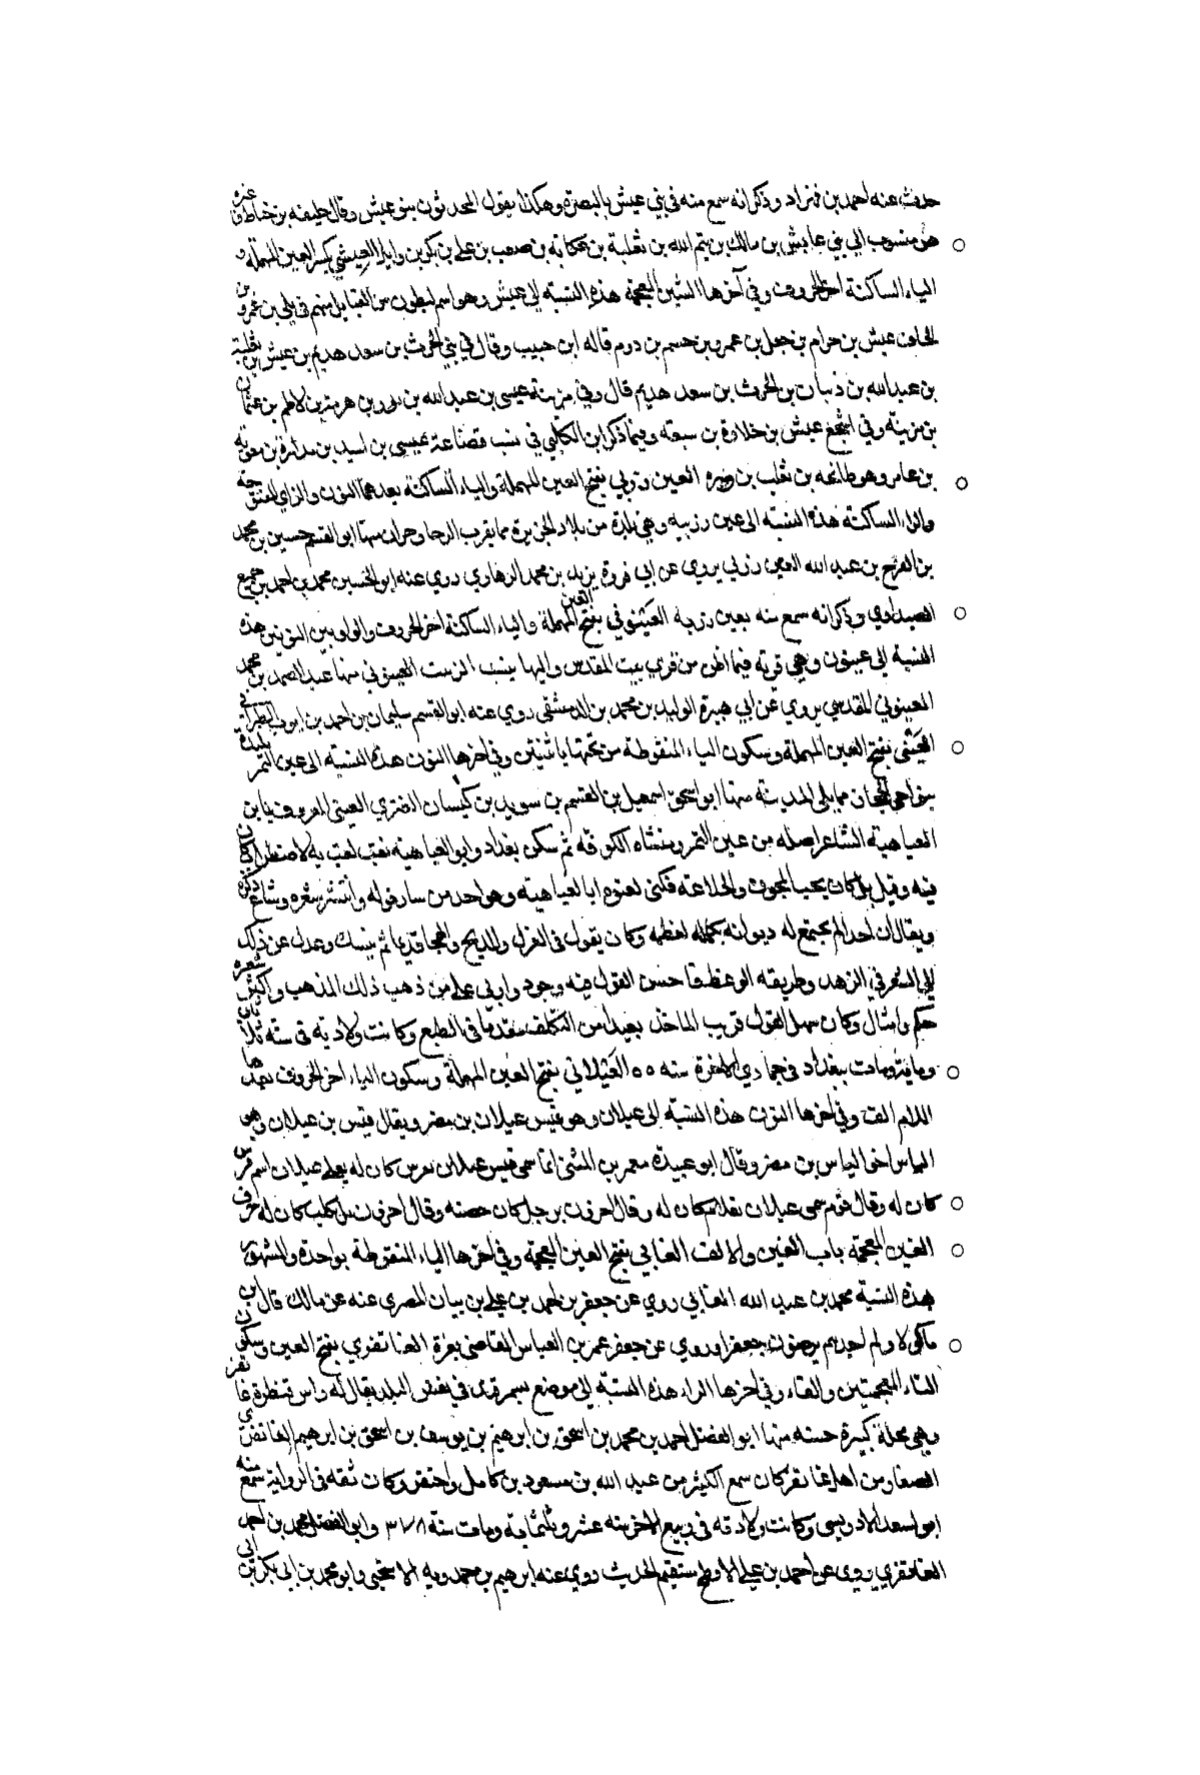 حدث عنه احمد بن فهزاد وذكر انه سمع منه في بني عيش بالبصرة وهكذا يقول المحدثون بنو عيش وقال خليفه بن خياط غيره
هو منسوب الي بني عايش بن مالك بن تيم الله بن ثعلبة بن عكابه بن صعب بن علي بن بكر بن وايل العيشي بكسر العين المهملة و
الياء الساكنة اخر الحروف وفي آخرها الشين المعجمة هذه النسبة الي عيش وهو اسم لبطون من القبايل منهم في بلي بن عمرو بن
الحاف عيش بن حرام بن جعل بن عمرو بن جسم بن ودم قاله ابن حبيب وقال في بني الحرث بن سعد هديم بن عيش بن ثعلبة
بن عبد الله بن ذبيان بن الحرث بن سعد هديم قال وفي مزينة عيسى بن عبد الله بن ثور بن هرمة بن لاطم بن عثمان
بن مزينة وفي اشجع عيش بن خلاوة بن سبعة وفيما ذكر ابن الكلبي في نسب قضاعة عيسى بن اسيد بن بن معوية
بن عامر وهو طابخه بن ثعلب بن وبره العين زربي بفتح العين المهملة والياء الساكنة بعدهما النون والزاي المفتوحة
والراء الساكنة هذه النسبة الى عين زربه وهي بلدة من بلاد الجزيرة مما يقرب الرها وحران منها ابو القسم حسين بن محمد
بن الفرج بن عبد الله العين زربي يروي عن ابي فروة يزيد بن محمد الرهاوي روي عنه ابو الحسين محمد بن احمد بن جميع
الصيداوي وذكر انه سمع منه بعين زربه العينوني بفتح العين المهملة والياء الساكنة اخر الحروف والواو بين النونين هذه
النسبة الى عينون وهي قرية فيما اظن من قري بيت المقدس واليها ينسب الزيت العينوني منها عبد الصمد بن محمد
العينوني المقدسي يروي عن ابي هبيرة الوليد بن محمد بن الدمشقي روي عنه ابو القسم سليمان بن احمد بن ايوب الطبراني
العيني بفتح العين المهملة وسكون الياء المنقوطة من تحتها باثنتين وفي اخرها النون هذه النسبة الى عين التمر بليدة
بنواحي الحجاز مما يلي المدينة منها ابو اسحق اسمعيل بن القسم بن سويد بن كيسان العنزي العيني المعروف بابي
العتاهية الشاعر اصله من عين التمر ومنشاه الكوفة ثم سكن بغداد وابو العتاهية لقب لقب به لاضطراب كان
فيه وقيل بل كان يحب المجون والخلاعة فكنى لعتوه ابا العتاهية وهو احد من سار قوله وانتشر شعره وشاع ذكره
ويقال ان احدا لم يجتمع له ديوانه بكماله لعظمه وكان يقول في الغزل والمديح والهجا قديما ثم ينسك وعدل عن ذلك
الى الشعر في الزهد وطريقة الوعظ فاحسن القول فيه وجود واربى علي من ذهب ذلك المذهب واكثر شعره
حكم وامثال وكان سهل القول قريب الماخذ بعيدا من التكلف متقدما في الطبع وكانت ولادته في سنة ثلاثين
ومائة ومات ببغداد في جمادي الاخرة سنه العيلاني بفتح العين المهملة وسكون الياء اخر الحروف بعدها
اللام الف وفي اخرها النون هذه النسبة الى عيلان وهو قيس عيلان بن مضر ويقال قيس بن عيلان وهو
الياس اخى الياس بن مضر وقال ابو عبيدة معمر بن المثنى انما سمى قيس عيلان بفرس كان له يعلى عيلان اسم فرس
كان له وقال قوم سمى عيلان بغلام كان له وقال اخرون برجل كان حضنه وقال اخرون بل كلب كان له حرف
الغين المعجمة باب الغين والالف الغابي بفتح الغين المعجمة وفي اخرها الياء المنقوطة بواحدة والمشهور
هذه النسبة محمد بن عبد الله الغابي روي عن جعفر بن احمد بن علي بن بيان المصري عنه عن مالك قال ابن
ماكولا ولم اجدهم يرضون جعفرا وروي عن جعفر عمر بن العباس القاضي بغزة الغاتفري بفتح الغين وسكون
التاء المعجمتين والفاء وفي اخرها الراء هذه النسبة الى موضع بسمرقند في نفس البلد يقال له راس قنطرة غاتفر
وهي محلة كبيرة حسنه منها ابو الفضل احمد بن محمد بن اسحق بن ابرهيم بن يوسف بن اسحق بن ابرهيم الغاتفري
الصفار من اهل غاتفر كان سمع الكثير من عبد الله بن مسعود بن كامل واحتفر وكان ثقه في الرواية سمع منه
ابو سعد الادريسي وكانت ولادته في ربيع الاخر سنه عشر وثلثمائة ومات سنة ٣٧٨ وابو الفضل محمد بن احمد
الغاتفري يروي عن احمد بن علي مستقيم الحديث روي عنه ابرهيم بن حمدويه الاشتيخني وابو محمد بن ابي بكر بن ابي